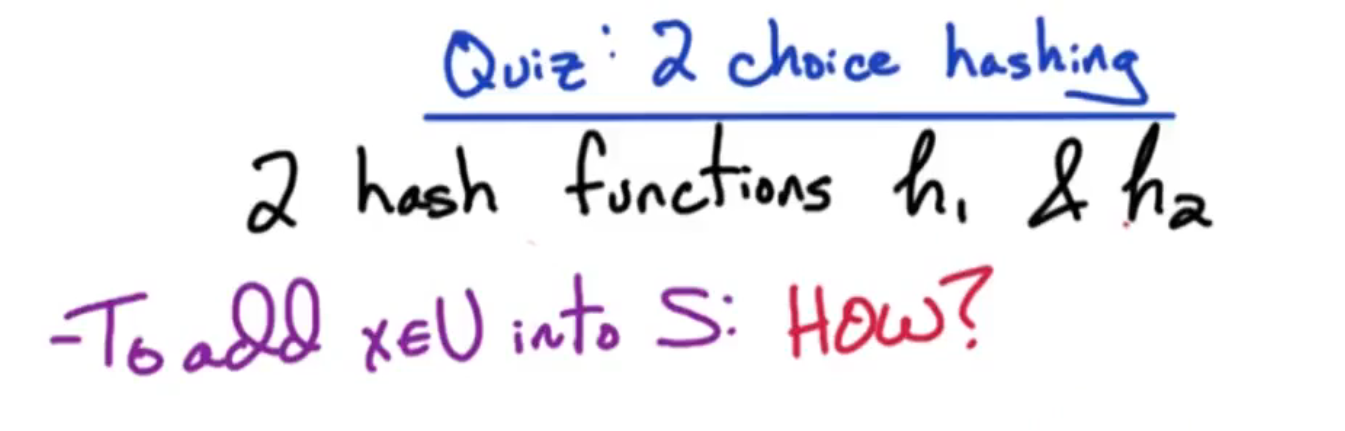 Quiz: 2 choice hashing
2 hash functions h₁ & h₂
- To add x∈U into S: HOW?